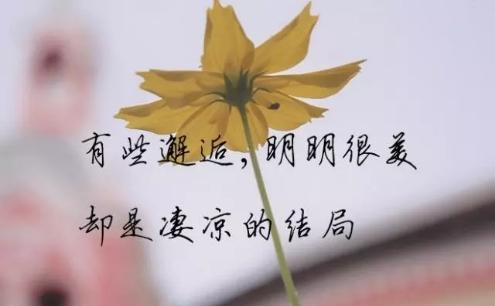 有些邂逅,明明很美
却是凄凉的结局